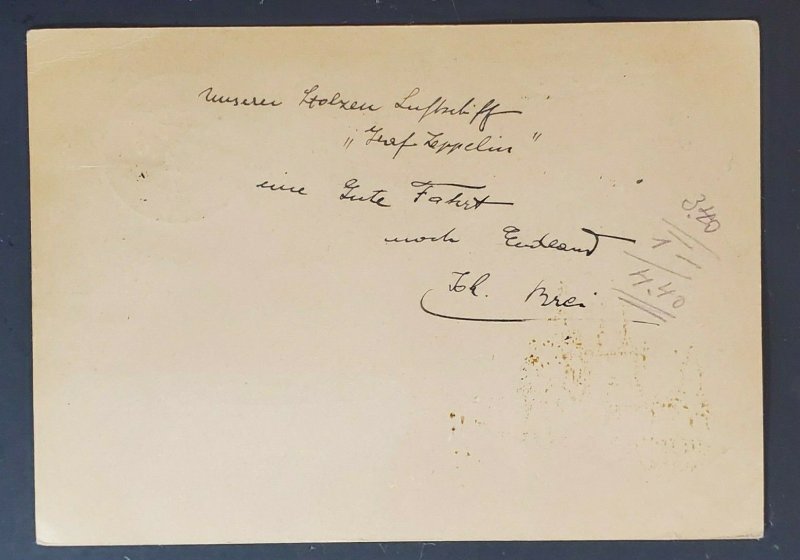 unseren Stolzen Luftschiff
„Graf Zeppelin"
eine Gute Fahrt
nach
Brei
3.40
1
4.40